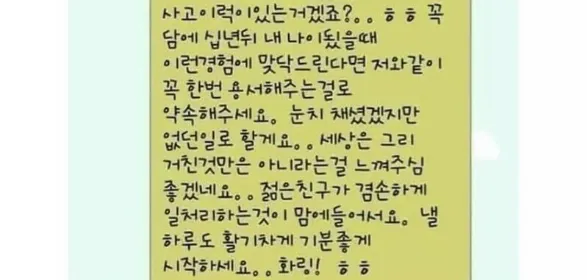 사고이럭이있는거겠죠?。。ㅎㅎ 꼭
담에 십년뒤 내 나이됬을때
이런경험에 맞닥드린다면 저와같이
꼭 한번 용서해주는걸로
약속해주세요。 눈치 채셨겠지만
없던일로 할게요。。세상은 그리
거친것만은 아니라는걸 느껴주심
좋겠네요。。젊은친구가 겸손하게
일처리하는것이 맘에들어서요。 낼
하루도 활기차게 기분좋게
시작하세요。。화링! ㅎㅎ